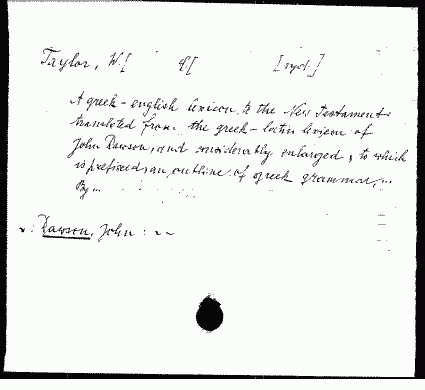 Taylor, W.[ [
A greek-english lexicon to the New Testament
translated from the greek-latin lexicon of
John Dawson, and considerably enlarged, to which
is prefixed, an outline of greek grammar,...
By...
Dawson, John : ~~